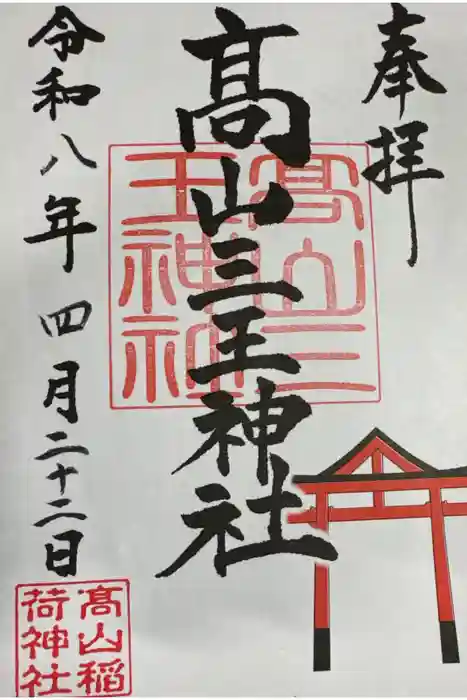 奉拝
髙山三王神社
髙山三
王神社
令和八年 四月二十二日
髙山稲
荷神社